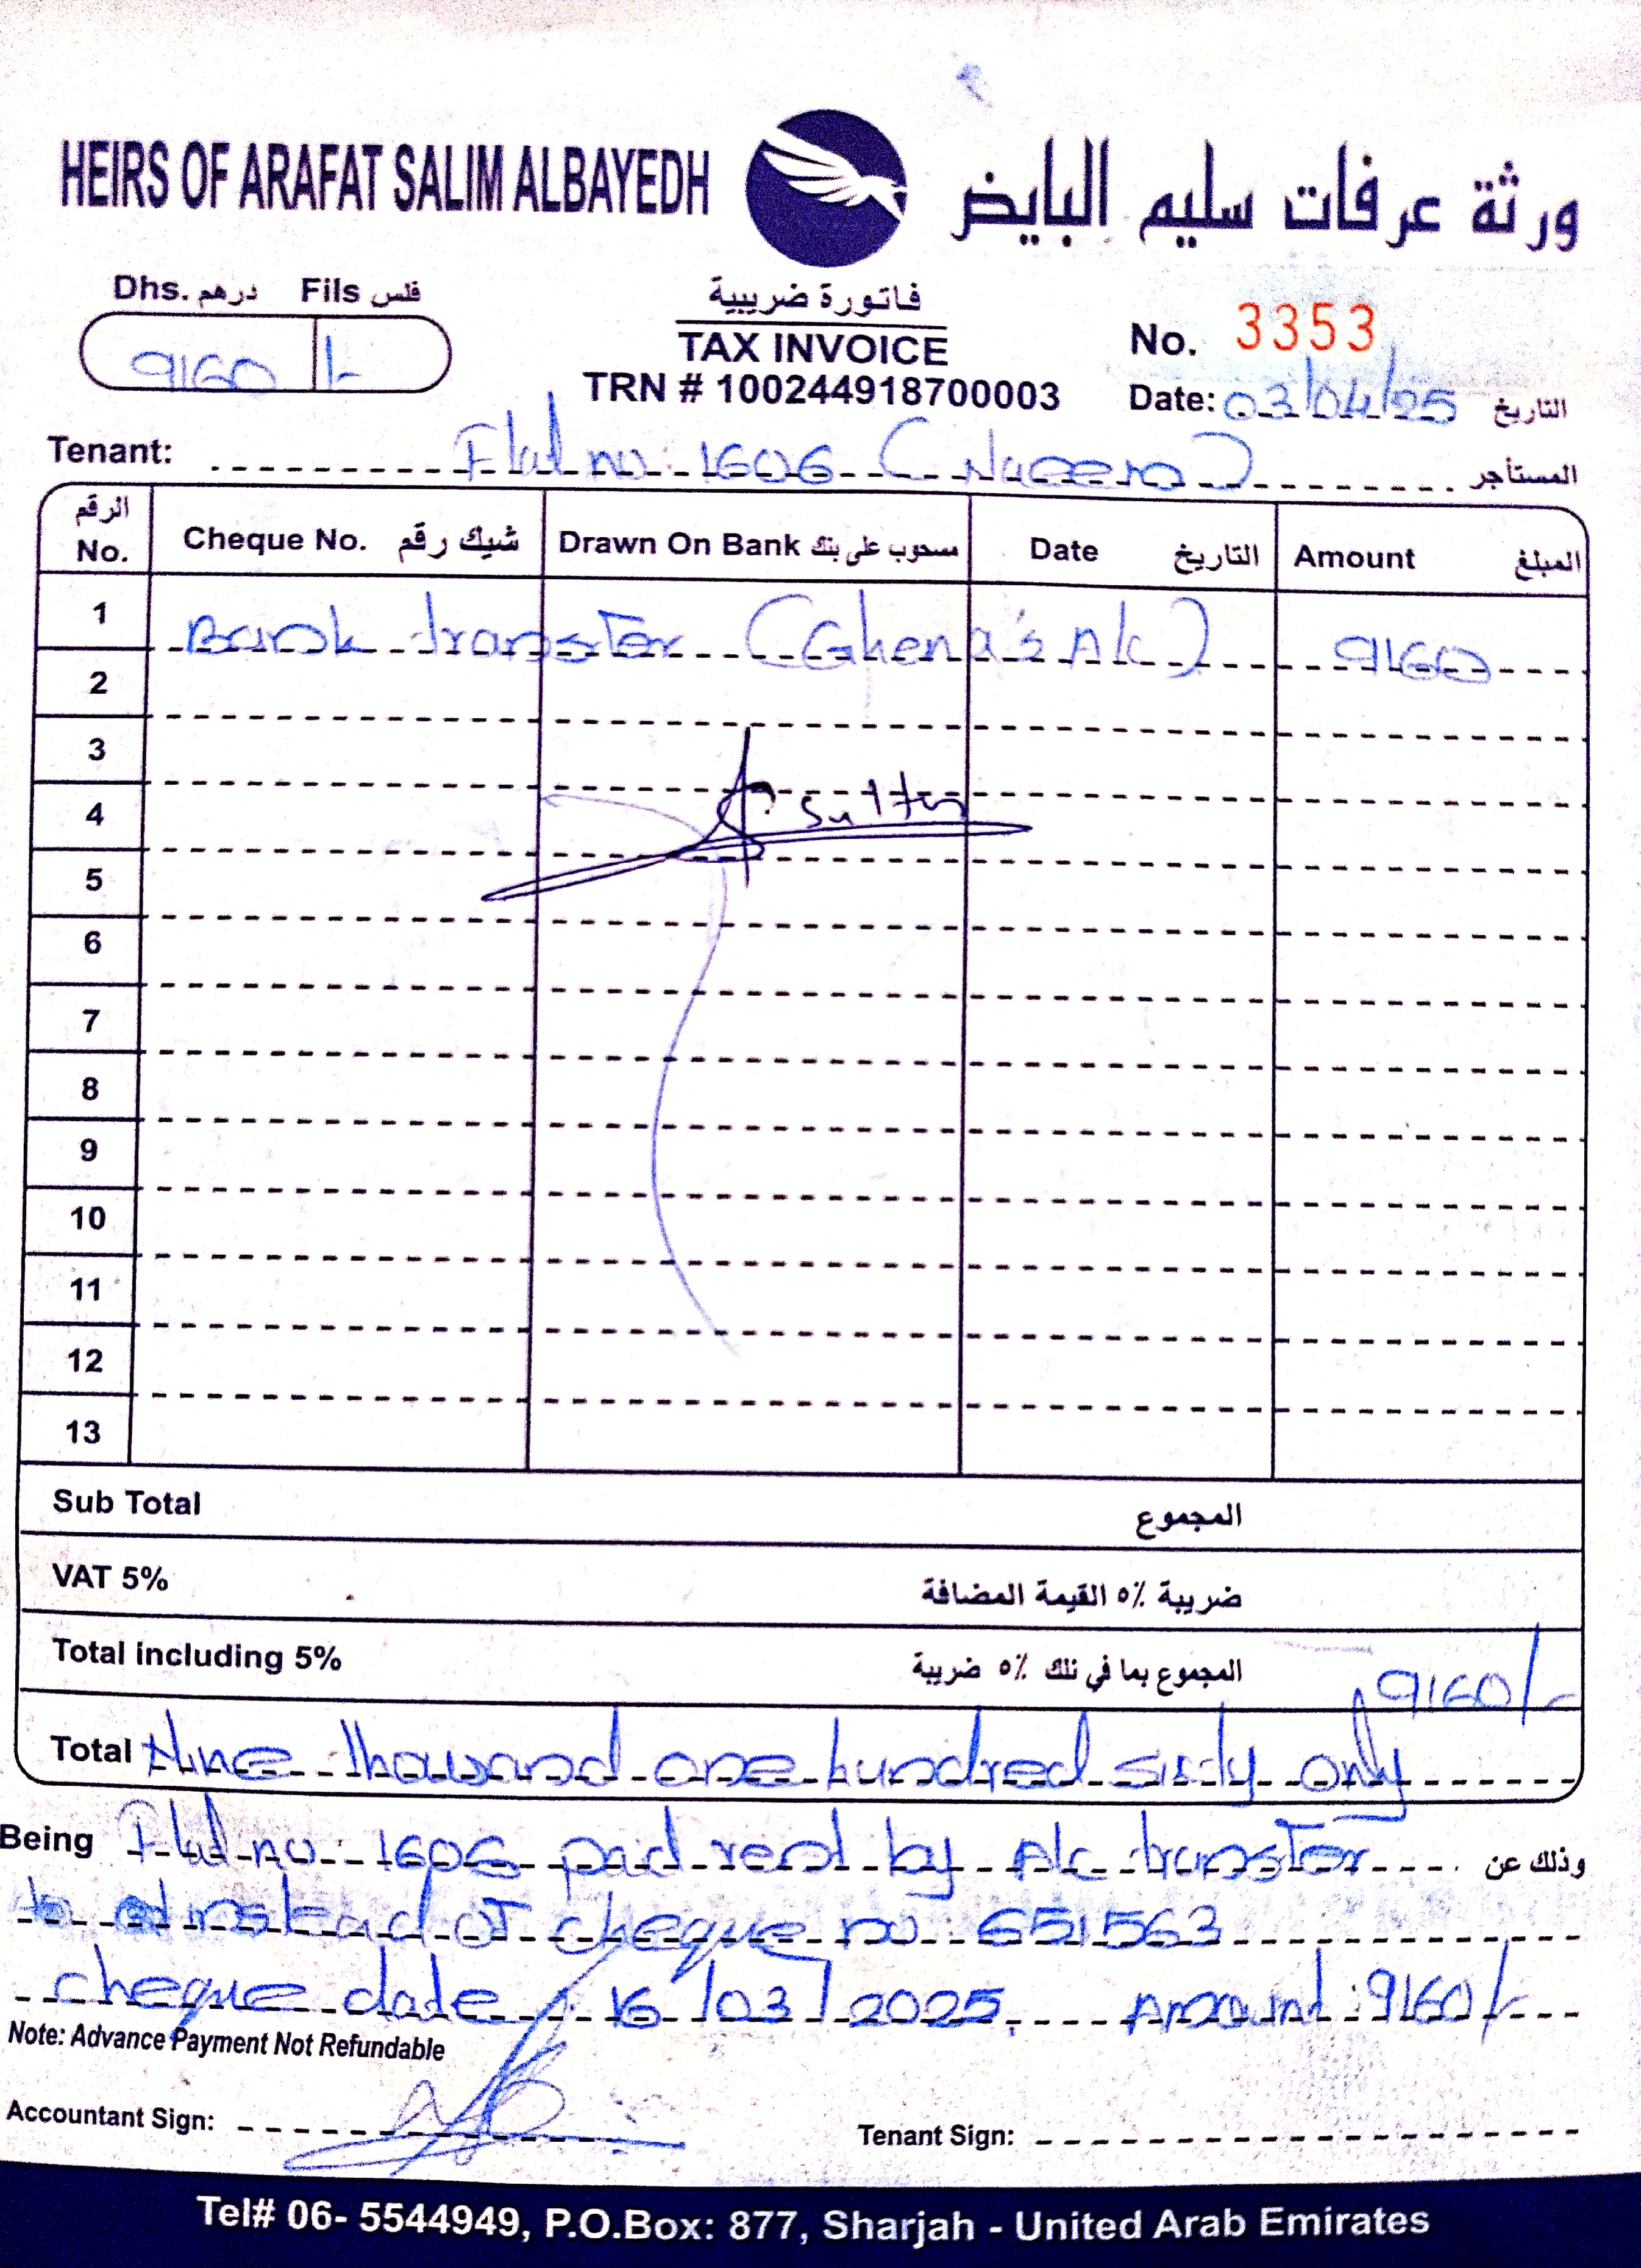 HEIRS OF ARAFAT SALIM ALBAYEDH ورثة عرفات سليم البايض
Dhs. درهم Fils فلس
9160 /-
فاتورة ضريبية
TAX INVOICE
TRN # 100244918700003
No. 3353
Date: 03/04/25 التاريخ
Tenant: Flat no: 1606 (Naeema) المستأجر
الرقم No. Cheque No. شيك رقم Drawn On Bank مسحوب على بنك Date التاريخ Amount المبلغ
1 Bank transfer (Ghena's A/c) 9160
2
3
4 sultan
5
6
7
8
9
10
11
12
13
Sub Total المجموع
VAT 5% ضريبة ٥٪ القيمة المضافة
Total including 5% المجموع بما في ذلك ٥٪ ضريبة 9160/-
Total Nine thousand one hundred sixty only
Being Flat no: 1606 paid rent by A/c transfer وذلك عن
instead of cheque no: 651563
cheque date: 16/03/2025, Amount: 9160/-
Note: Advance Payment Not Refundable
Accountant Sign: Tenant Sign:
Tel# 06- 5544949, P.O.Box: 877, Sharjah - United Arab Emirates